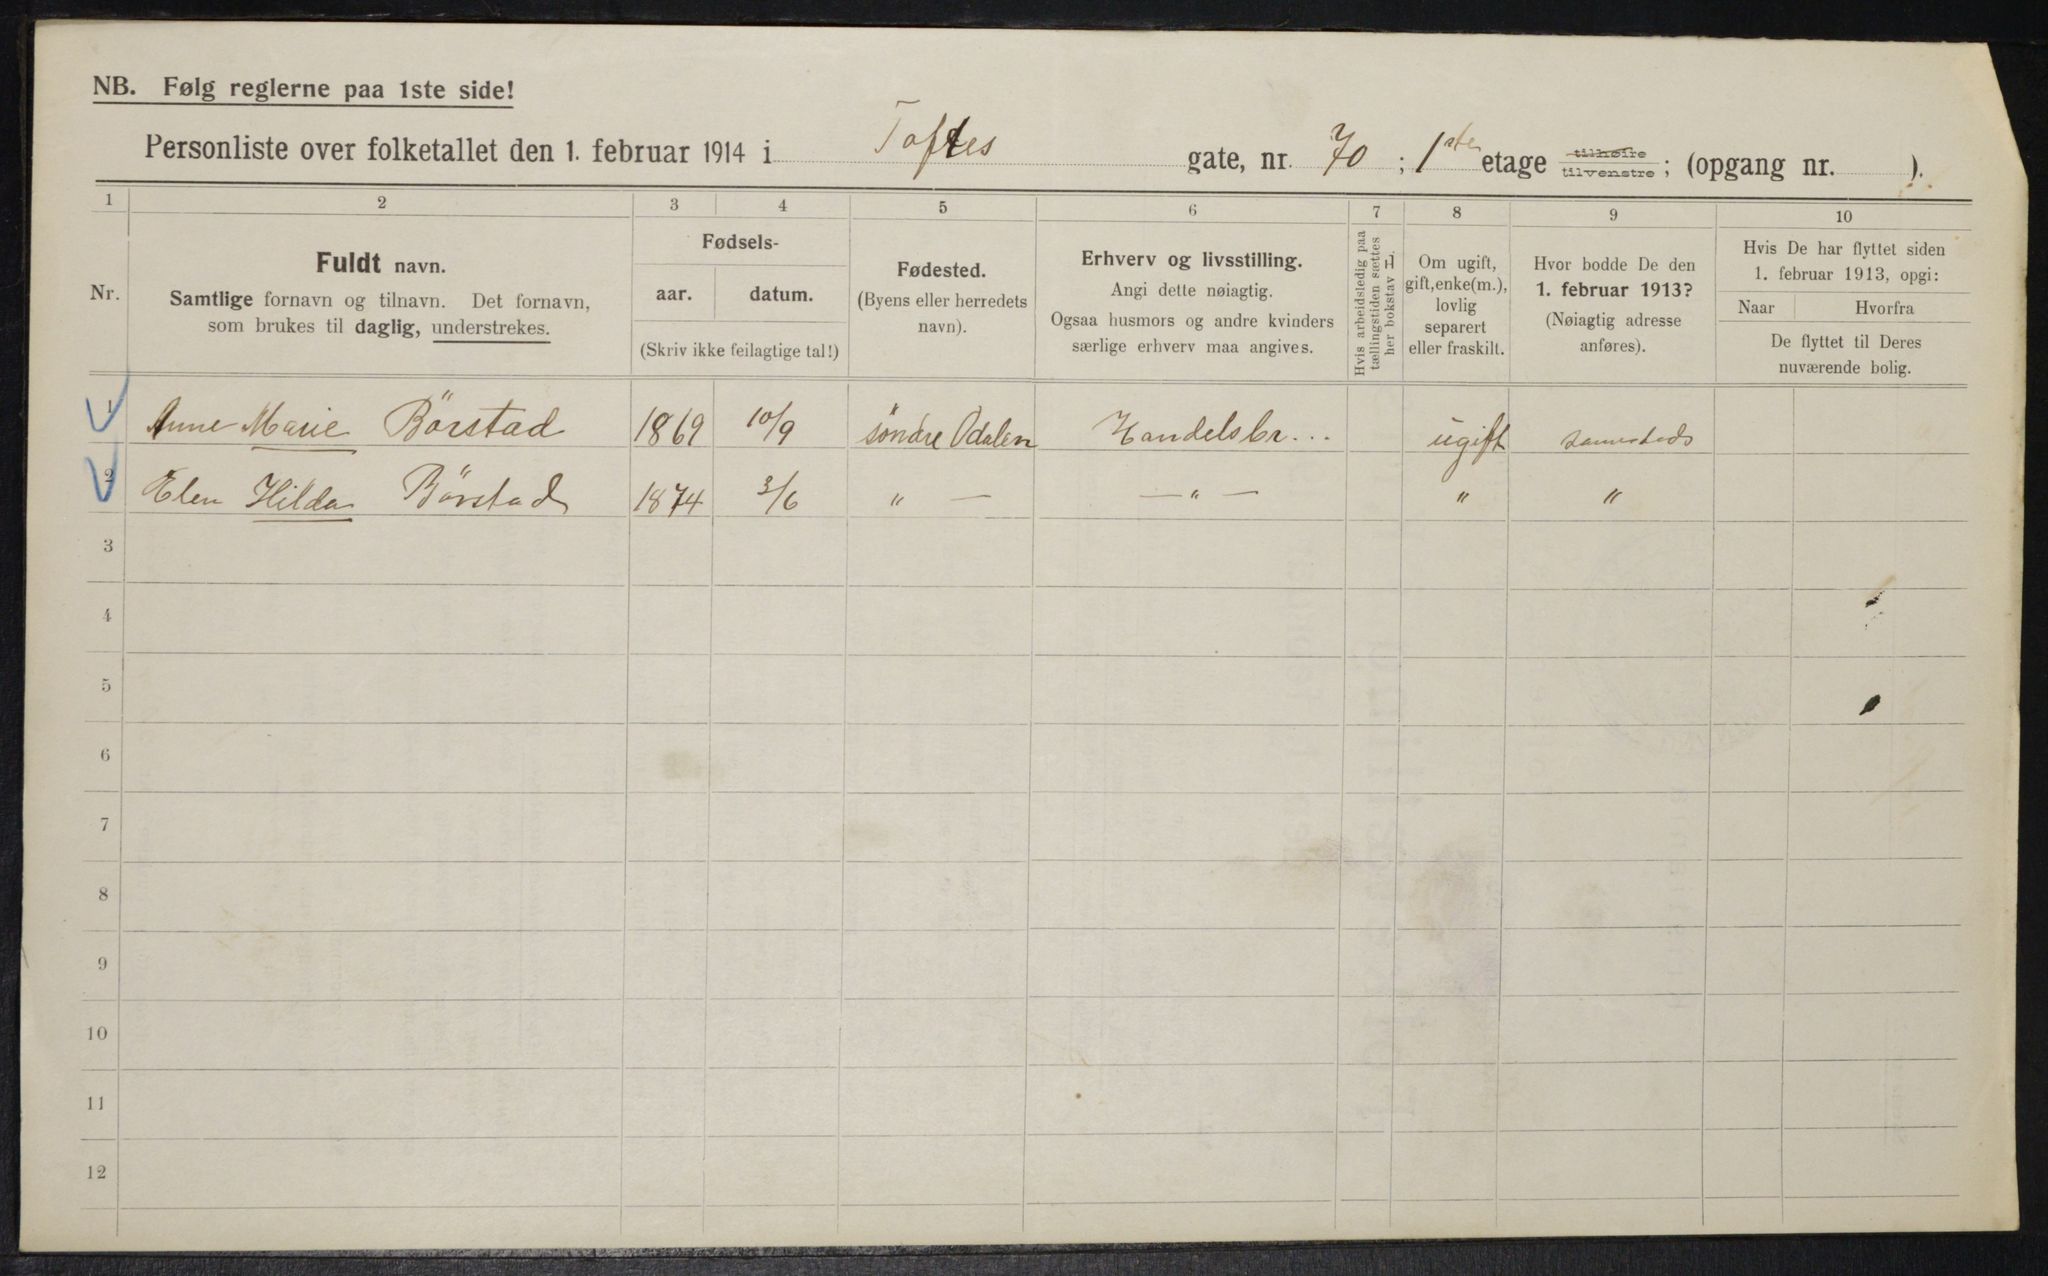 NB. Følg reglerne paa 1ste side!
Personliste over folketallet den 1. februar 1914 i Toftes gate, nr. 70 ; 1ste etage tilhøire tilvenstre ; (opgang nr. ).
1 2 3 4 5 6 7 8 9 10
Nr.
Fuldt navn.
Samtlige fornavn og tilnavn. Det fornavn,
som brukes til daglig, understrekes.
Fødsels-
aar. datum.
(Skriv ikke feilagtige tal!)
Fødested.
(Byens eller herredets
navn).
Erhverv og livsstilling.
Angi dette nøiagtig.
Ogsaa husmors og andre kvinders
særlige erhverv maa angives.
Hvis arbeidsledig paa
tællingstiden sættes
her bokstav L.
Om ugift,
gift, enke(m.),
lovlig
separert
eller fraskilt.
Hvor bodde De den
1. februar 1913?
(Nøiagtig adresse
anføres).
Hvis De har flyttet siden
1. februar 1913, opgi:
Naar Hvorfra
De flyttet til Deres
nuværende bolig.
1 Anne Marie Börstad 1869 10/9 söndre Odalen Handelsbr... ugift sammesteds
2 Elen Hilda Börstad 1874 3/6 " — — " — " "
3
4
5
6
7
8
9
10
11
12